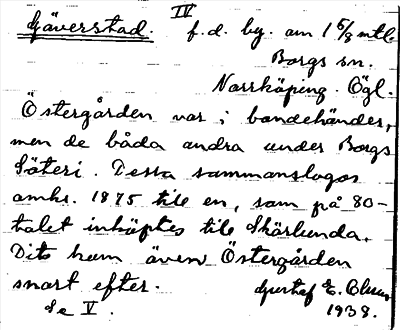 IV
Gäverstad. f.d. by. om 1 5/8 mtl.
Borgs sn.
Norrköping. Ögl.
Östergården var i bondehänder,
men de båda andra under Borgs
Säteri. Dessa sammanslogos
omkr. 1875 till en, som på 80-
talet inköptes till Skärlunda.
Dito kom även Östergården
snart efter. Gustaf E.
Se V. 1938.